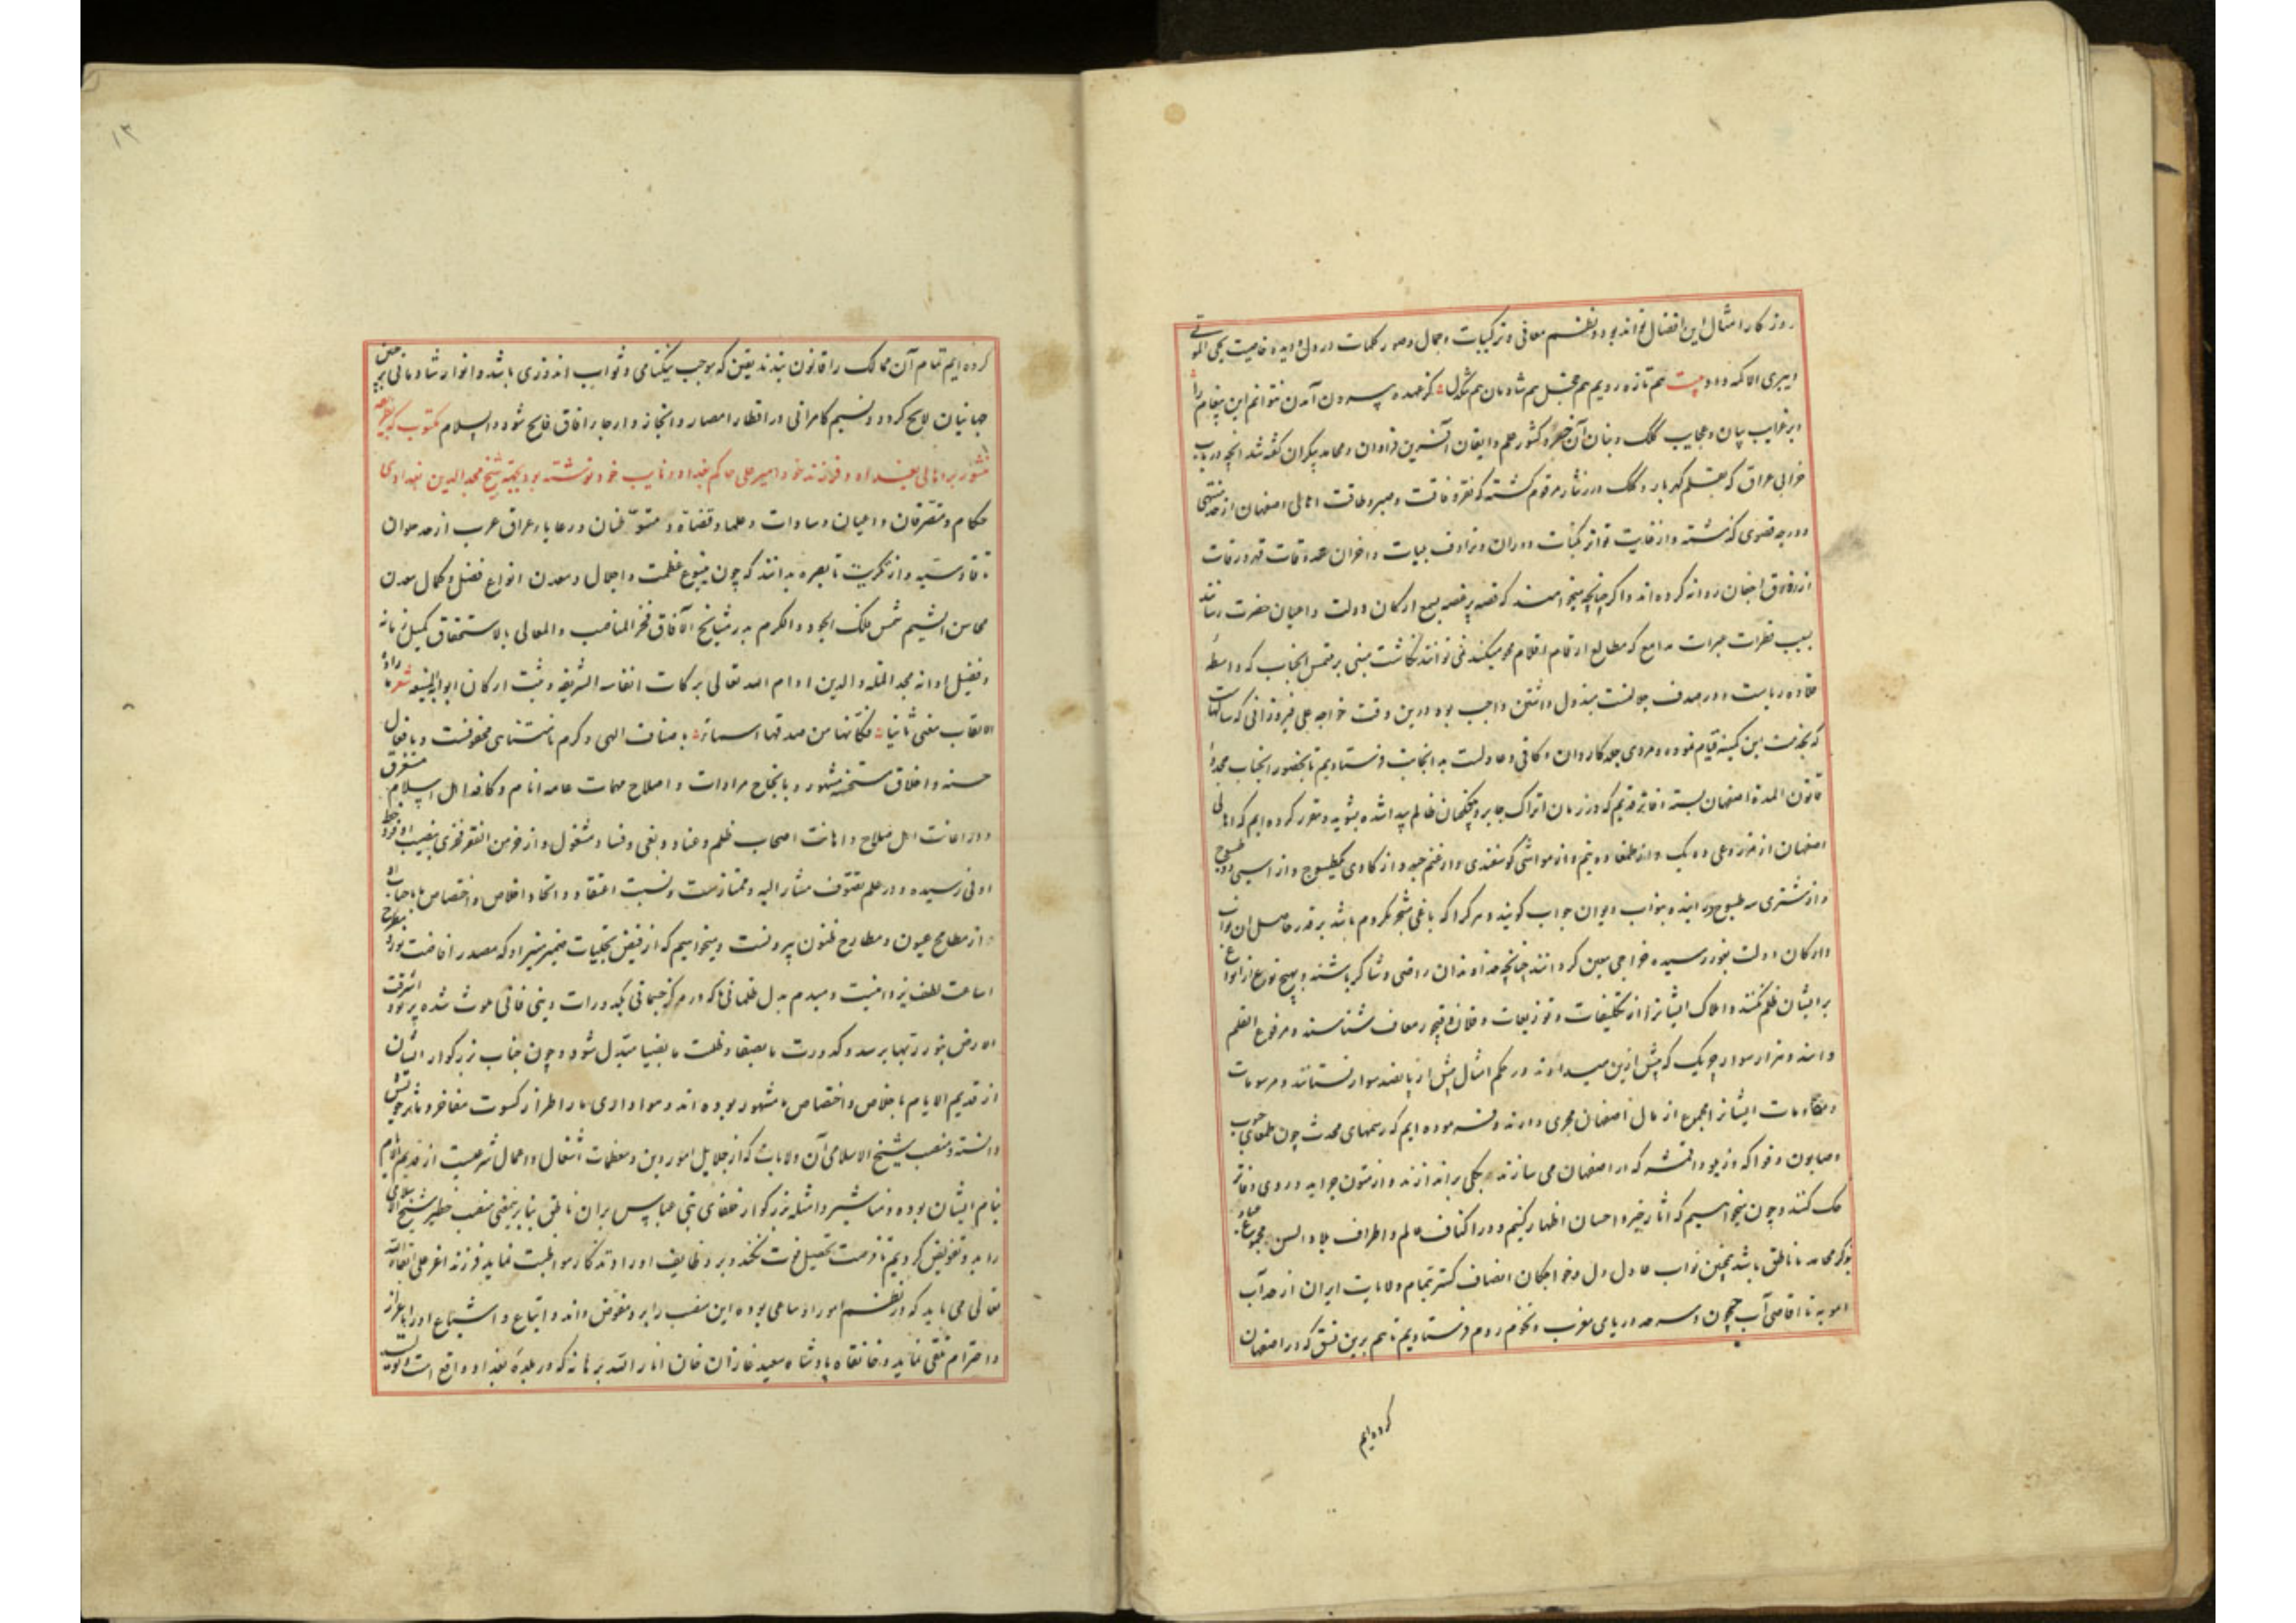 روزگار امثال این افضال تواند بود و نظم معانی و ترکیبات و جمال و صور کلمات در دل و دیده خاصیت یحیی الموتی
ویبری الاکمه داد بیت هم تازه رویم هم خجل هم شادمان هم تنگدل کز عهده بیرون آمدن نتوانم این پیغام را
و بر غرایب بیان و عجایب کلک و بنان آن خسرو کشور علم و ایقان آفرین فراوان و محامد بیکران گفته شد آنچه در باب
خرابی عراق که بقلم گهربار و کلک در نثار مرقوم گشته که فقر و فاقت و صبر و طاقت اهالی اصفهان از حد منتهی
و درجه قصوی گذشته و از غایت تواتر نکبات دوران و ترادف بلیات و احزان عبرات
از زورق اجفان روانه کرده اند و اگر چنانچه میخواهند که قصه پر غصه بسمع ارکان دولت و اعیان حضرت رسانند
بسبب قطرات عبرات مدامع که مطالع ارقام اقلام محو میکند نمی توانند نگاشت مبنی بر ملتمس آنجناب که واسطه
قلاده ریاست و در صدف جلالست مبذول داشتن واجب بود درین وقت خواجه علی فیروزانی که سالهاست
که بخدمت این کمینه قیام نموده و مردی جلد کاردان و کافی و عادلست بدانجانب فرستادیم تا بحضور آنجناب مجددا
قانون المده اصفهان بسته دفاتر قدیم که در زمان اتراک جابر و بیتکچیان ظالم پیدا شده بشوید و مقرر کرده ایم که اهالی
اصفهان از متوجهات ده یک و از طمغا ده نیم و از مواشی گوسفندی و از غنم حبه و از گاوی یکطسوج و از اسبی دو طسوج
و از شتری سه طسوج بدهند و بنواب دیوان جواب گویند و هر کرا که باغی مشجر بکروم باشد بر قدر حاصل آن نواب
و ارکان دولت بغور رسیده خراجی معین گردانند چنانچه خداوندان راضی و شاکر باشند و بهیچ نوع از انواع
بر ایشان ظلم نکنند و املاک ایشانرا از تکلیفات و توزیعات و قلان و قبچور معاف شناسند و مرفوع القلم
دانند و هزار سوار چریک که پیش ازین میداده اند در حکم امثال بیش از پانصد سوار نستانند و مرسومات
و مقامات ایشانرا مجموع از مال اصفهان مجری دارند و فرموده ایم که رسمهای محدث چون طمغای حبوب
و صابون و فواکه و اقمشه که در اصفهان می سازند بکلی براندازند و از متون جراید و روی دفاتر
حک کنند و چون میخواهیم که آثار خیر و احسان اظهار کنیم و در اکناف عالم و اطراف بلاد السن مجموع عباد
بذکر محامد ما ناطق باشد همچنین نواب عادل دل و خواجگان انصاف گستر بتمام ولایات ایران از حد آب
امویه تا اقاصی آب جیحون و سرحد دریای مغرب و تخوم روم فرستادیم تا هم برین نسق که در اصفهان
کرده ایم
۱۳
کرده ایم تمام آن ممالک را قانون بندند یقین که موجب نیکنامی و ثواب اندوزی باشد و انوار شادمانی بر
جهانیان لایح گردد و نسیم کامرانی در اقطار امصار و انجاز و ارجاء آفاق فایح شود والسلام مکتوب که بطریق
منشور بر اهالی بغداد و فرزند خود امیر علی حاکم بغداد و نایب خود نوشته بود بجهة شیخ مجد الدین بغدادی
حکام و متصرفان و اعیان و سادات و علما و قضاة و متوطنان و رعایاء عراق عرب از حد حلوان
تا قادسیه و از تکریت تا بصره بدانند که چون ینبوع عظمت و اجلال و معدن انواع فضل و کمال معدن
محاسن الشیم شمس فلک الجود و الکرم بدر مشایخ الآفاق فخر المناقب و المعالی بالاستحقاق کمیل زمانه
و فضیل اوانه مجد الملة والدین ادام الله تعالی برکات انفاسه الشریفه و ثبت ارکان ابوابه المنیعه شعر زاده
الالقاب معنی ثانیا فکانها من صدقها اسماؤه باصناف الهی و کرم نامتناهی محفوفست و بافعال
حسنه و اخلاق مستحسنه مشهور و بانجاح مرادات و اصلاح مهمات عامه انام و کافه اهل اسلام مستغرق
و در اعانت اهل صلاح و اهانت اصحاب ظلم و عناد و بغی و فساد مشغول و از خرمن الفقر فخری بنصیب اوفر و حظ
اوفی رسیده و در علم تصوف مشار الیه و ممتازست و نسبت اعتقاد و اتحاد و اخلاص و اختصاص ما بجناب او
از مطامح عیون و مطارح ظنون بیرونست و میخواهیم که از فیض تجلیات ضمیر منیر او که مصدر افاضت نور و مطرح
اشاعت لطف یزدانیست دمبدم بدل ظلمانی ما که در مرکز جسمانی بکدورات دینی فانی ملوث شده پرتو و اشرقت
الارض بنور ربها برسد و کدورت ما بصفا و ظلمت ما بضیا مبدل شود و چون جناب بزرگوار ایشان
از قدیم الایام باخلاص و اختصاص ما مشهور بوده اند و هواداری ما را طراز کسوت مفاخر و مآثر خویش
دانسته و منصب شیخ الاسلامی آن ولایات که از جلایل امور دین و معظمات اشغال و اعمال شرعیست از قدیم الایام
بنام ایشان بوده و مناشیر و امثله بزرگوار خلفای بنی عباس بران ناطق بنابرین معنی منصب خطیر شیخ الاسلامی
را بدو تفویض کردیم تا فرصت تحصیل فوت نکند و بر وظایف اوراد و تذکار مواظبت نماید فرزند اعز علی ابقاه الله
تعالی می باید که در نظم امور او ساعی بوده این منصب را برو مفوض داند و اتباع و اشیاع او را باعزاز
و احترام تلقی نماید و خانقاه پادشاه سعید غازان خان انار الله برهانه که در بلده بغداد واقع است